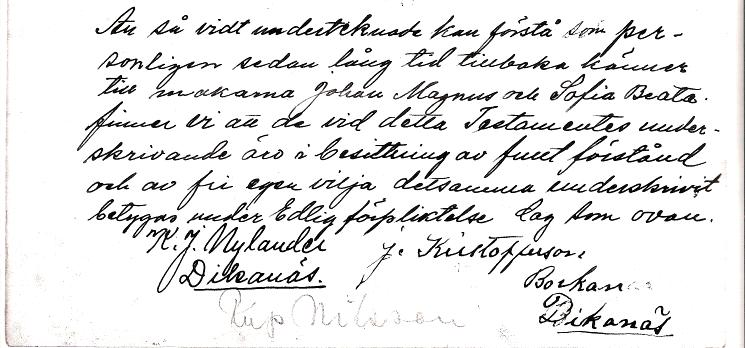 An så vidt underteknade kan förstå som per-
sonligen sedan lång tid tillbaka känner
till makarna Johan Magnus och Sofia Beata.
finner vi att de vid detta Testamentes under-
skrivande äro i besittning av fullt förstånd
och av fri egen vilja detsamma underskrivit
betygas under Edlig förpliktelse dag som ovan.
K. J. Nylander J. Kristofferson
Dikanäs. Borkan
Dikanäs
Nilsson